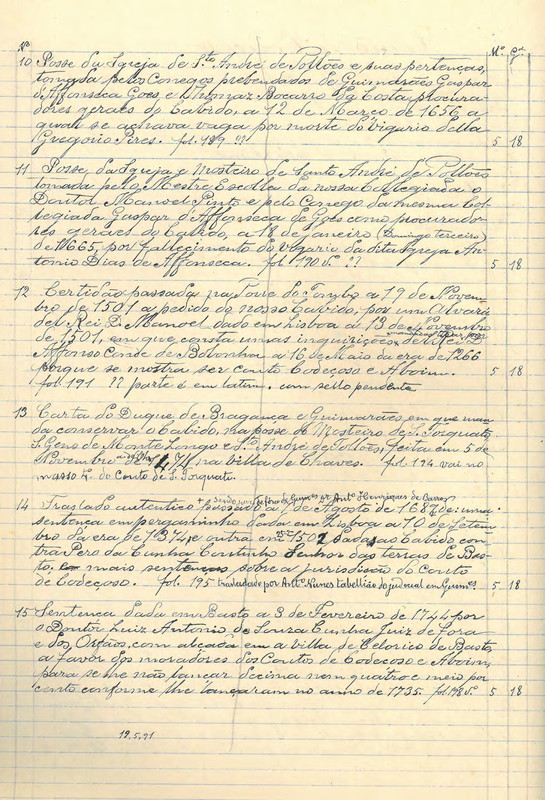 Nº Mº Gª
10 Posse da Igreja de Sto. André de Tolloes e suas pertenças,
tomada pelos Conegos prebendados de Guimarães Gaspar
d'Affonseca Goes, e Thomaz Bocarro da Costa, procura-
dores geraes do Cabido, a 12 de Março de 1656, a
qual se achava vaga por morte do vigario della
Gregorio Pires. fol. 189 ?? 5 18
11 Posse da Igreja e Mosteiro de Santo André de Tolloes
tomada pelo Mestre Escolla da nossa Collegiada o
Doutor Manoel Pinto e pelo Conego da mesma Col-
legiada Gaspar d'Affonseca de Goes como procurado-
res geraes do Cabido, a 18 de Janeiro (Domingo terceiro)
de 1665, por fallecimento do vigario da dita Igreja An-
tonio Dias de Affonseca. fol. 190 vº ?? 5 18
12 Certidão passada na Torre do Tombo a 19 de Novem-
bro de 1501 a pedido do nosso Cabido, por um Alvará
del Rei D. Manoel dado em Lisboa a 13 de Novembro
de 1501, em que consta umas inquirições de el Rei D.
Affonso Conde de Bolonha a 16 de Maio da era de 1266
porque se mostra ser couto Codeçoso e Aboim. 5 18
fol. 191 ?? parte é em latim. com sello pendente
13 Carta do Duque de Bragança e Guimarães, em que man-
da conservar o Cabido, na posse do Mosteiro de S. Torquato,
S. Gens de Monte Longo e Sto. André de Tolloes, feita em 5 de
Novembro de 1474 na villa de Chaves. fol. 194 vai no
masso 4. do Couto de S. Torquato.
sendo juiz de fora de Guimes. o dr. Antº Henriques de
14 Traslado autentico passado a 7 de Agosto de 1687 de: uma
sentença em pergaminho dada em Lisboa a 10 de Setem-
bro da era de 1374, e outra em 1502 dadas ao Cabido con-
tra Pero da Cunha Coutinho Senhor das terras de Bas-
to, e mais sentenças sobre a jurisdisão do couto
de Codeçoso. fol. 195 trasladado por Antº Nunes tabellião do judicial em Guimes. 5 18
15 Sentença dada em Basto a 3 de Fevereiro de 1744 por
o Doutor Luiz Antonio de Souza Cunha, Juiz de fora
e dos Orfãos, com alçada em a villa de Celorico de Basto
a favor dos moradores dos Coutos de Codeçoso e Aboim,
para se lhe não lançar decima nem quatro e meio por
cento conforme lhe lançaram no anno de 1735. fol. 198 vº 5 18
19.5.91